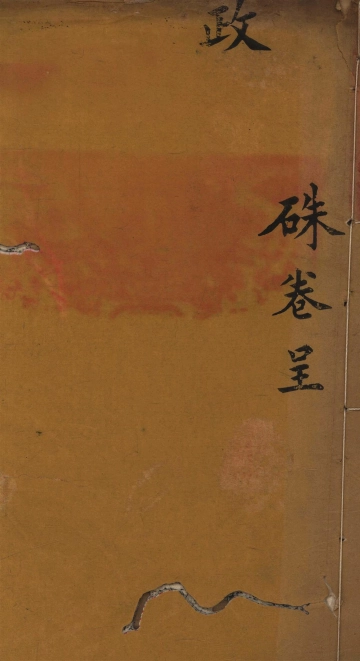 硃卷呈
政